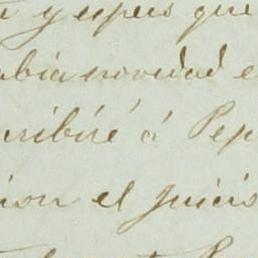 y espero que
abia novedad e
cribiré á Pep
ion el juicio